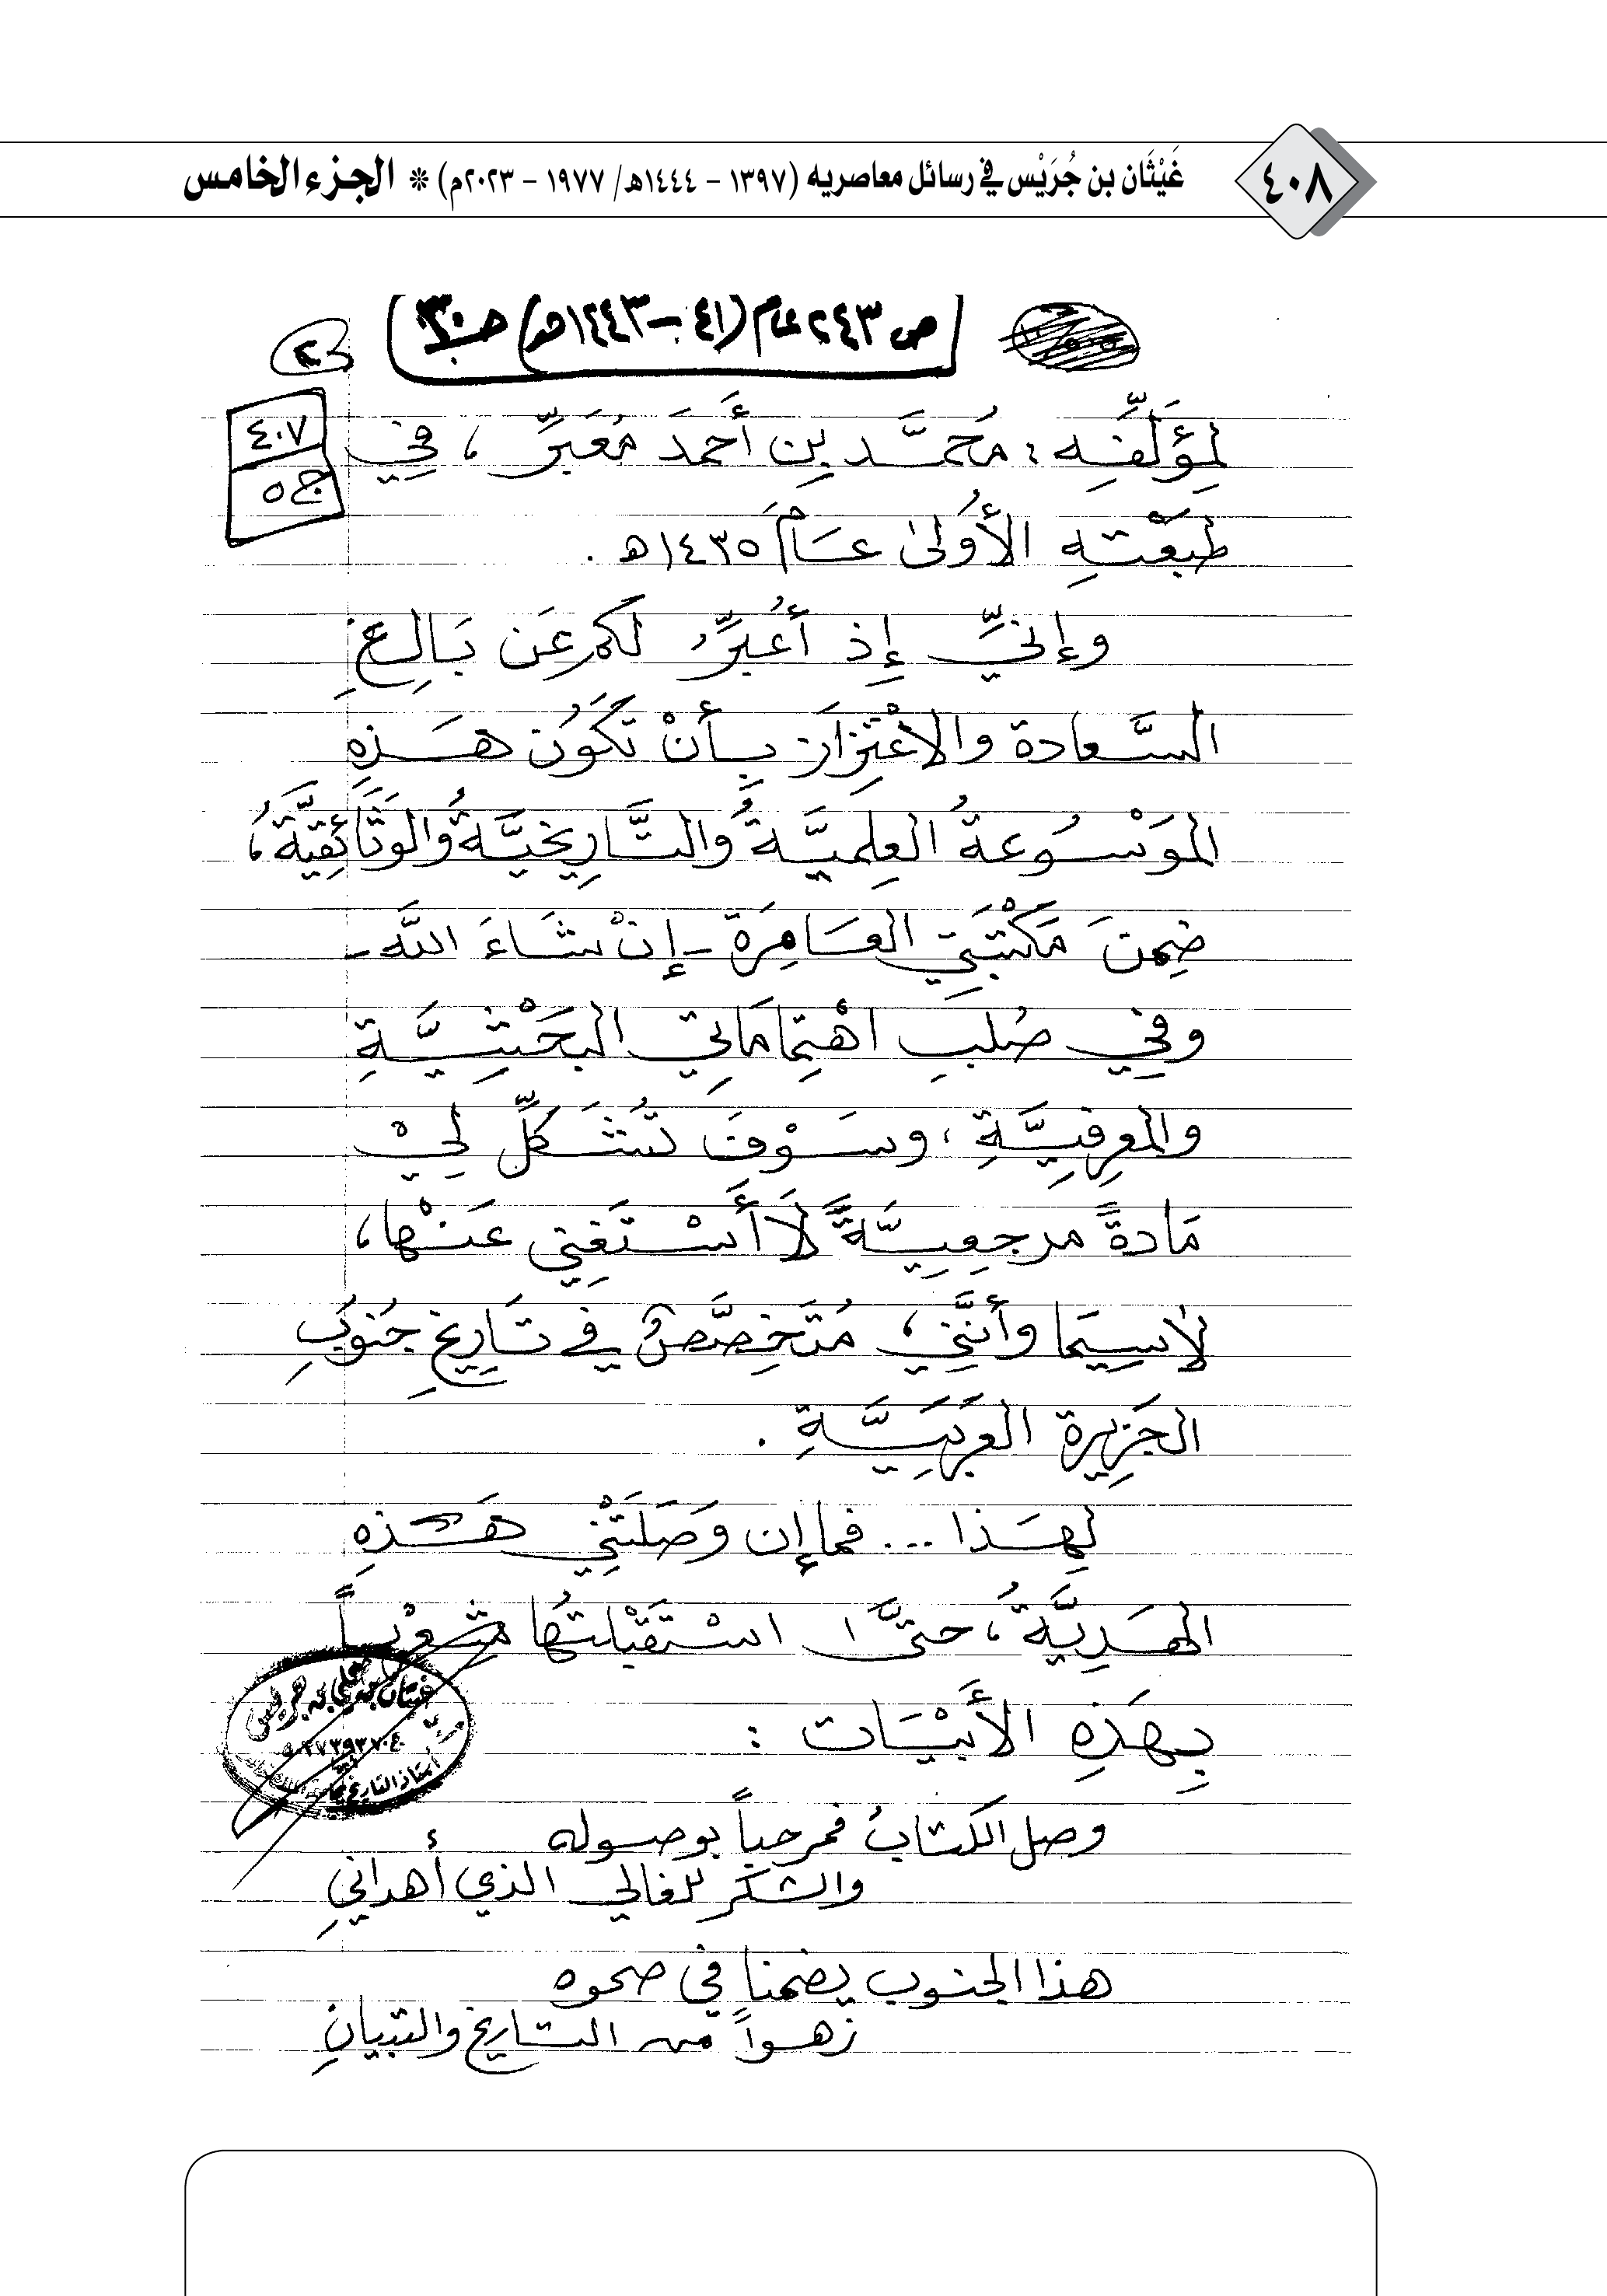 ٤٠٨
غَيْثَان بن جُرَيْس في رسائل معاصريه (١٣٩٧ - ١٤٤٤هـ/ ١٩٧٧ - ٢٠٢٣م) * الجزء الخامس
ص ٢٤٣ عام (٤١ - ١٤٤٣هـ)
٢
٤٠٧
ج٥
لِمؤَلِّفِه : مُحمَّد بن أَحمدَ مُعَبِّر ، في
طبعْتهِ الأُولى عَام ١٤٣٥هـ .
وإنيِّ إِذ أُعبِّرُ لكم عَن بَالِغِ
السَّعادة والاعْتِزاز بِأَنْ تَكُون هَذِهِ
الموْسُوعةُ العِلميَّةُ والتَّارِيخيَّةُ والوَثَائِقيَّةُ ،
ضِمنَ مَكْتَبَتِي العَامِرَة - إِنْ شَاءَ اللَّه -
وفِي صُلبِ اهْتِمامَاتِي البَحْثِيَّةِ
والمعرِفِيَّةِ ، وسَوْفَ تُشَكِّل لِيْ
مَادةً مرجِعِيَّةً لَا أَسْتَغنِي عَنْها ،
لاسِيَما وأنَّنِي ، مُتَخصِّصٌ في تَارِيخِ جَنُوبِ
الجَزِيرة العَرَبِيَّةِ .
لِهَذا ... فما إن وَصَلَتْنِي هَذِهِ
الهَدِيَّةُ ، حتَّى اسْتَقْبَلتُها
بِهَذِهِ الأَبْيَات :
غيثان بن علي بن جريس
أستاذ التاريخ
وصل الكتابُ فمرحباً بوصوله
والشكر للغالي الذي أهدانيِ
هذا الجنوب يضمنا في صحوه
زهواً من التاريخ والتبيانِ